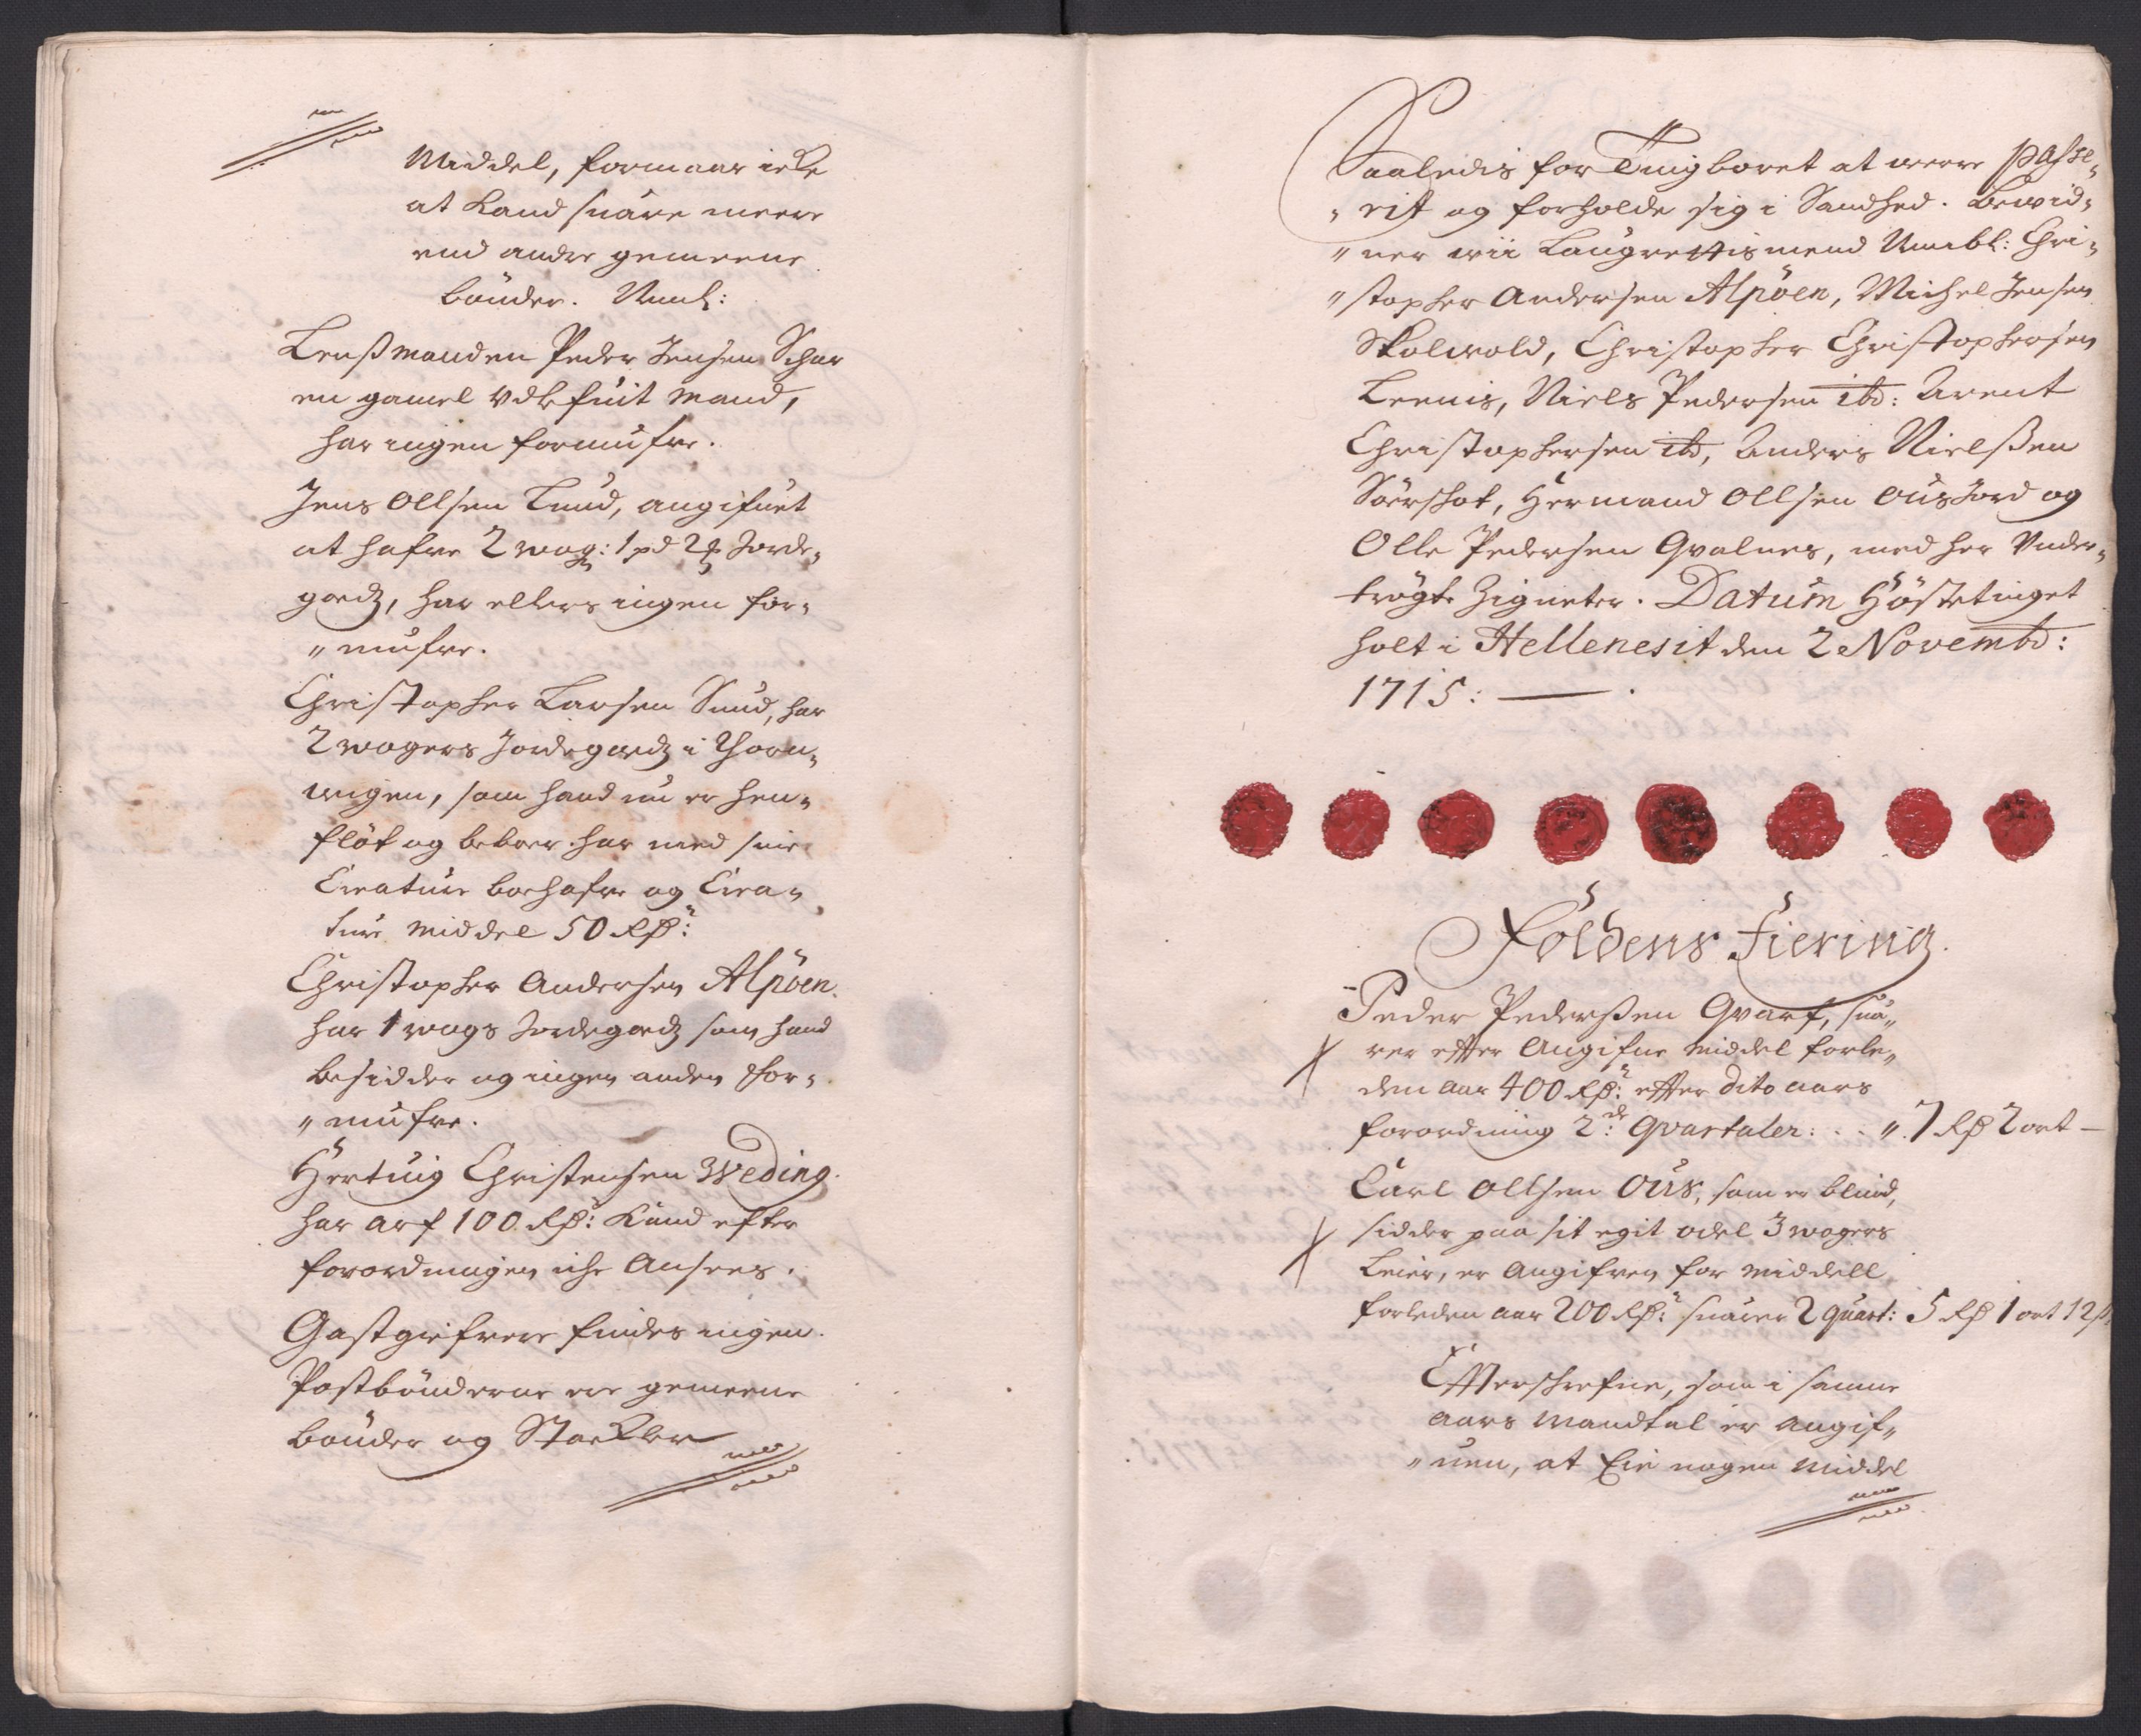 Middel, formaar icke
at Kand suare meere
end andre gemeene
bönder. Neml:
Lensmanden Peder Jensen Schar
en gamel Udlefuit Mand,
har ingen formufve.
Jens Ollsen Lund, angifuet
at hafve 2 wog: 1 pd Jorde„
godz, har ellers ingen for„
„mufve.
Christopher Larsen Sund, har
2 wogers Jordegodz i Thorn„
wigen, som hand nu er hen„
flöt og beboer har med sine
Creature boehafve og Crea„
ture Middel 50 Rdr:
Christopher Andersen Alpöen.
har 1 wogs Jordegodz som hand
besidder og ingen anden For„
„mufve.
Hertuig Christensen Weding.
har arf 100 Rdr: Kund efter
forordningen iche Ansees.
Gastgiefvere findes ingen.
Postbönderne ere gemeene
bönder og Stackler
Saaledis for Tingboret at were passe„
„rit og forholde sig i Sandhed. Bewid„
„ner wii Laugrettismend Nembl: Chri„
„stopher Andersen Alpöen, Michel Jensen
Skolwold, Christopher Christophersen
Leenis, Niels Pedersen ibd: Arent
Christophersen ibd, Anders Nielssen
Hermand Ollsen Ousjord og
Olle Pedersen Qvalnes, med her Under„
trögte Zigneter. Datum Höstetinget
holt i Hellenesit den 2 Novembr:
1715:
Foldens Fiering.
Peder Pederssen Qvarf, sua„
rer efter Angifne Middel forle„
den Aar 400 Rdr: efter dito aars
forordning 2de: Qvartaler: .. „ 7 Rdr 2 ort —
Carl Ollsen Ous, som er blind,
sidder paa sit egit odel 3 wogers
Leier, er Angifven for Middell
forleden aar 200 Rdr: suarer 2 Quart: 5 Rdr 1 ort 12 s
Efterschrefne, som i samme
aars Mandtal er angif„
„uen, at Eie nogen Middel